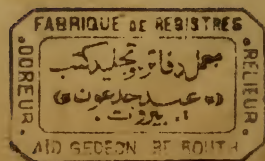 FABRIQUE DE REGISTRES
RELIEUR
DOREUR
معمل دفاتر وتجليد كتب
عبيد جدعون
بيروت
AID GEDEON BEYROUTH